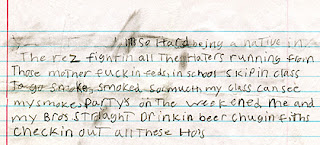 so Hard being a native in
The rez fightin all the Haters running from
Those mother fuckin feds, in school skipin class
To go smoke, smoked so much my class can see
my smoke, Partys on the week ened me and
my Bros straight Drinkin beer chugin fifths
checkin out all These Hoes